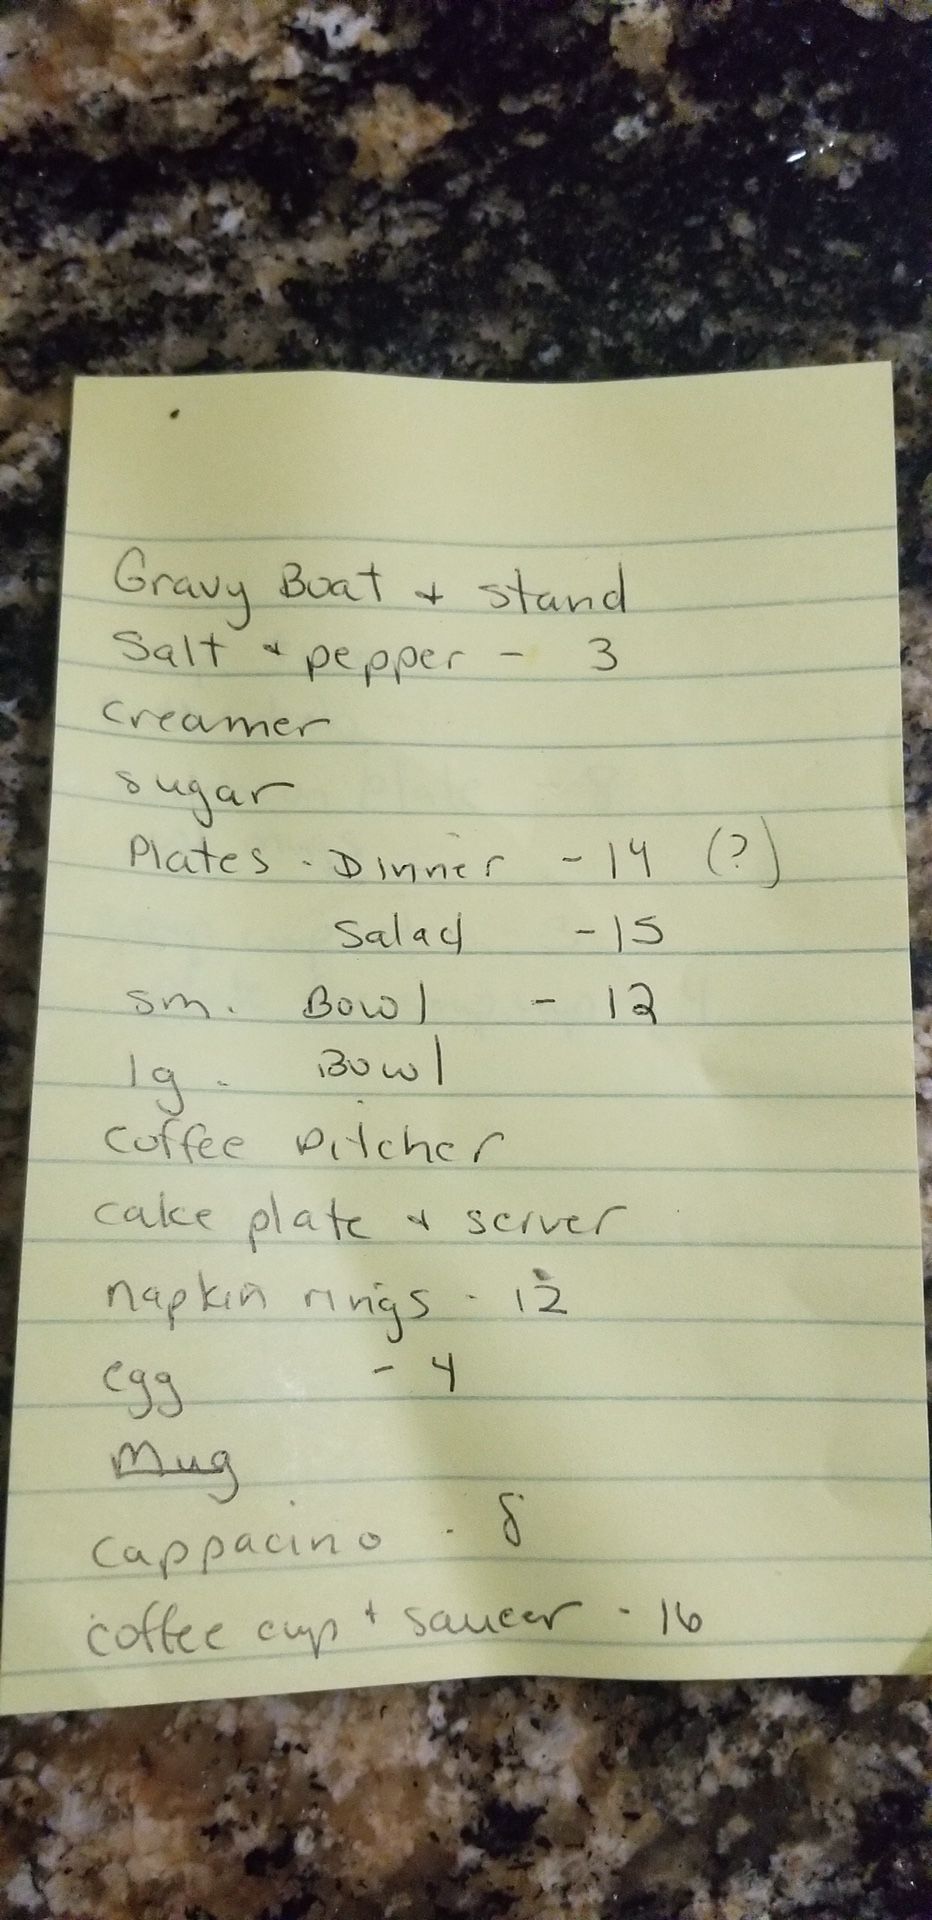 Gravy Boat + Stand
Salt + pepper - 3
creamer
sugar
Plates - Dinner - 14 (?)
Salad - 15
sm. Bowl - 12
lg. Bowl
Coffee Pitcher
cake plate + server
napkin rings - 12
egg - 4
Mug
cappacino - 8
coffee cup + saucer - 16